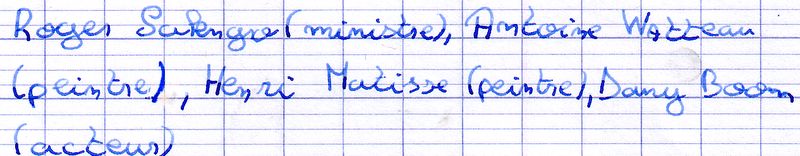 Roger Salengro (ministre), Antoine Watteau
(peintre), Henri Matisse (peintre), Dany Boom
(acteur)